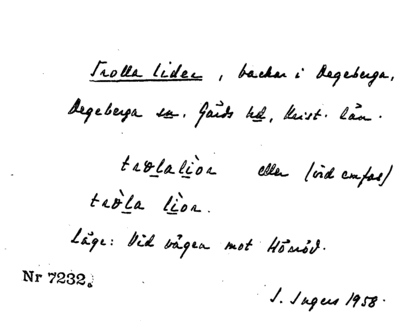 Trolla lider, backar i Degeberga,
Degeberga sn. Gärds hd, Krist. län.
trolalìor eller (vid emfas)
tròla lìor.
Läge: Vid vägen mot Hörröd.
Nr 7232.
I. Ingers 1958.